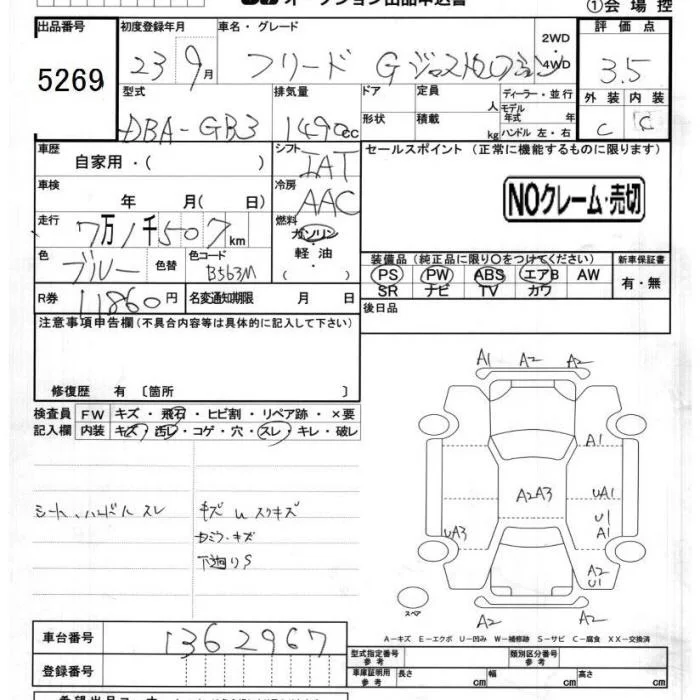 オークション出品申込書
①会場控
出品番号
5269
初度登録年月
23 9月
車名・グレード
フリード Gジャストセレクション
2WD
4WD
評価点
3.5
外装 内装
C C
型式
DBA-GB3
排気量
1490cc
ドア
形状
定員
人
積載
kg
ディーラー・並行
モデル年式 年
ハンドル 左・右
車歴
自家用・( )
シフト
IAT
車検
年 月( 日)
冷房
AAC
走行
7万1千507km
燃料
ガソリン・軽油・( )
色
ブルー
色替
色コード
B563M
R券
11860円
名変通知期限 月 日
セールスポイント(正常に機能するものに限ります)
NOクレーム・売切
装備品(純正品に限り○をつけてください)
PS PW ABS エアB AW
SR ナビ TV カワ
新車保証書
有・無
後日品
注意事項申告欄(不具合内容等は具体的に記入して下さい)
修復歴 有〔箇所 〕
検査員記入欄
FW キズ・飛石・ヒビ割・リペア跡・×要
内装 キズ・汚レ・コゲ・穴・スレ・キレ・破レ
シート、ハンドル スレ
キズ U スリキズ
下廻りS
A1 A2 A2
A1
A2A3
UA1
U1
A1
UA3
A2
U1
A2 A2
スペア
A-キズ E-エクボ U-凹み W-補修跡 S-サビ C-腐食 XX-交換済
車台番号
1362967
登録番号
型式指定番号
参考
類別区分番号
参考
車庫証明用
参考
長さ cm 幅 cm 高さ cm
希望出品コーナー